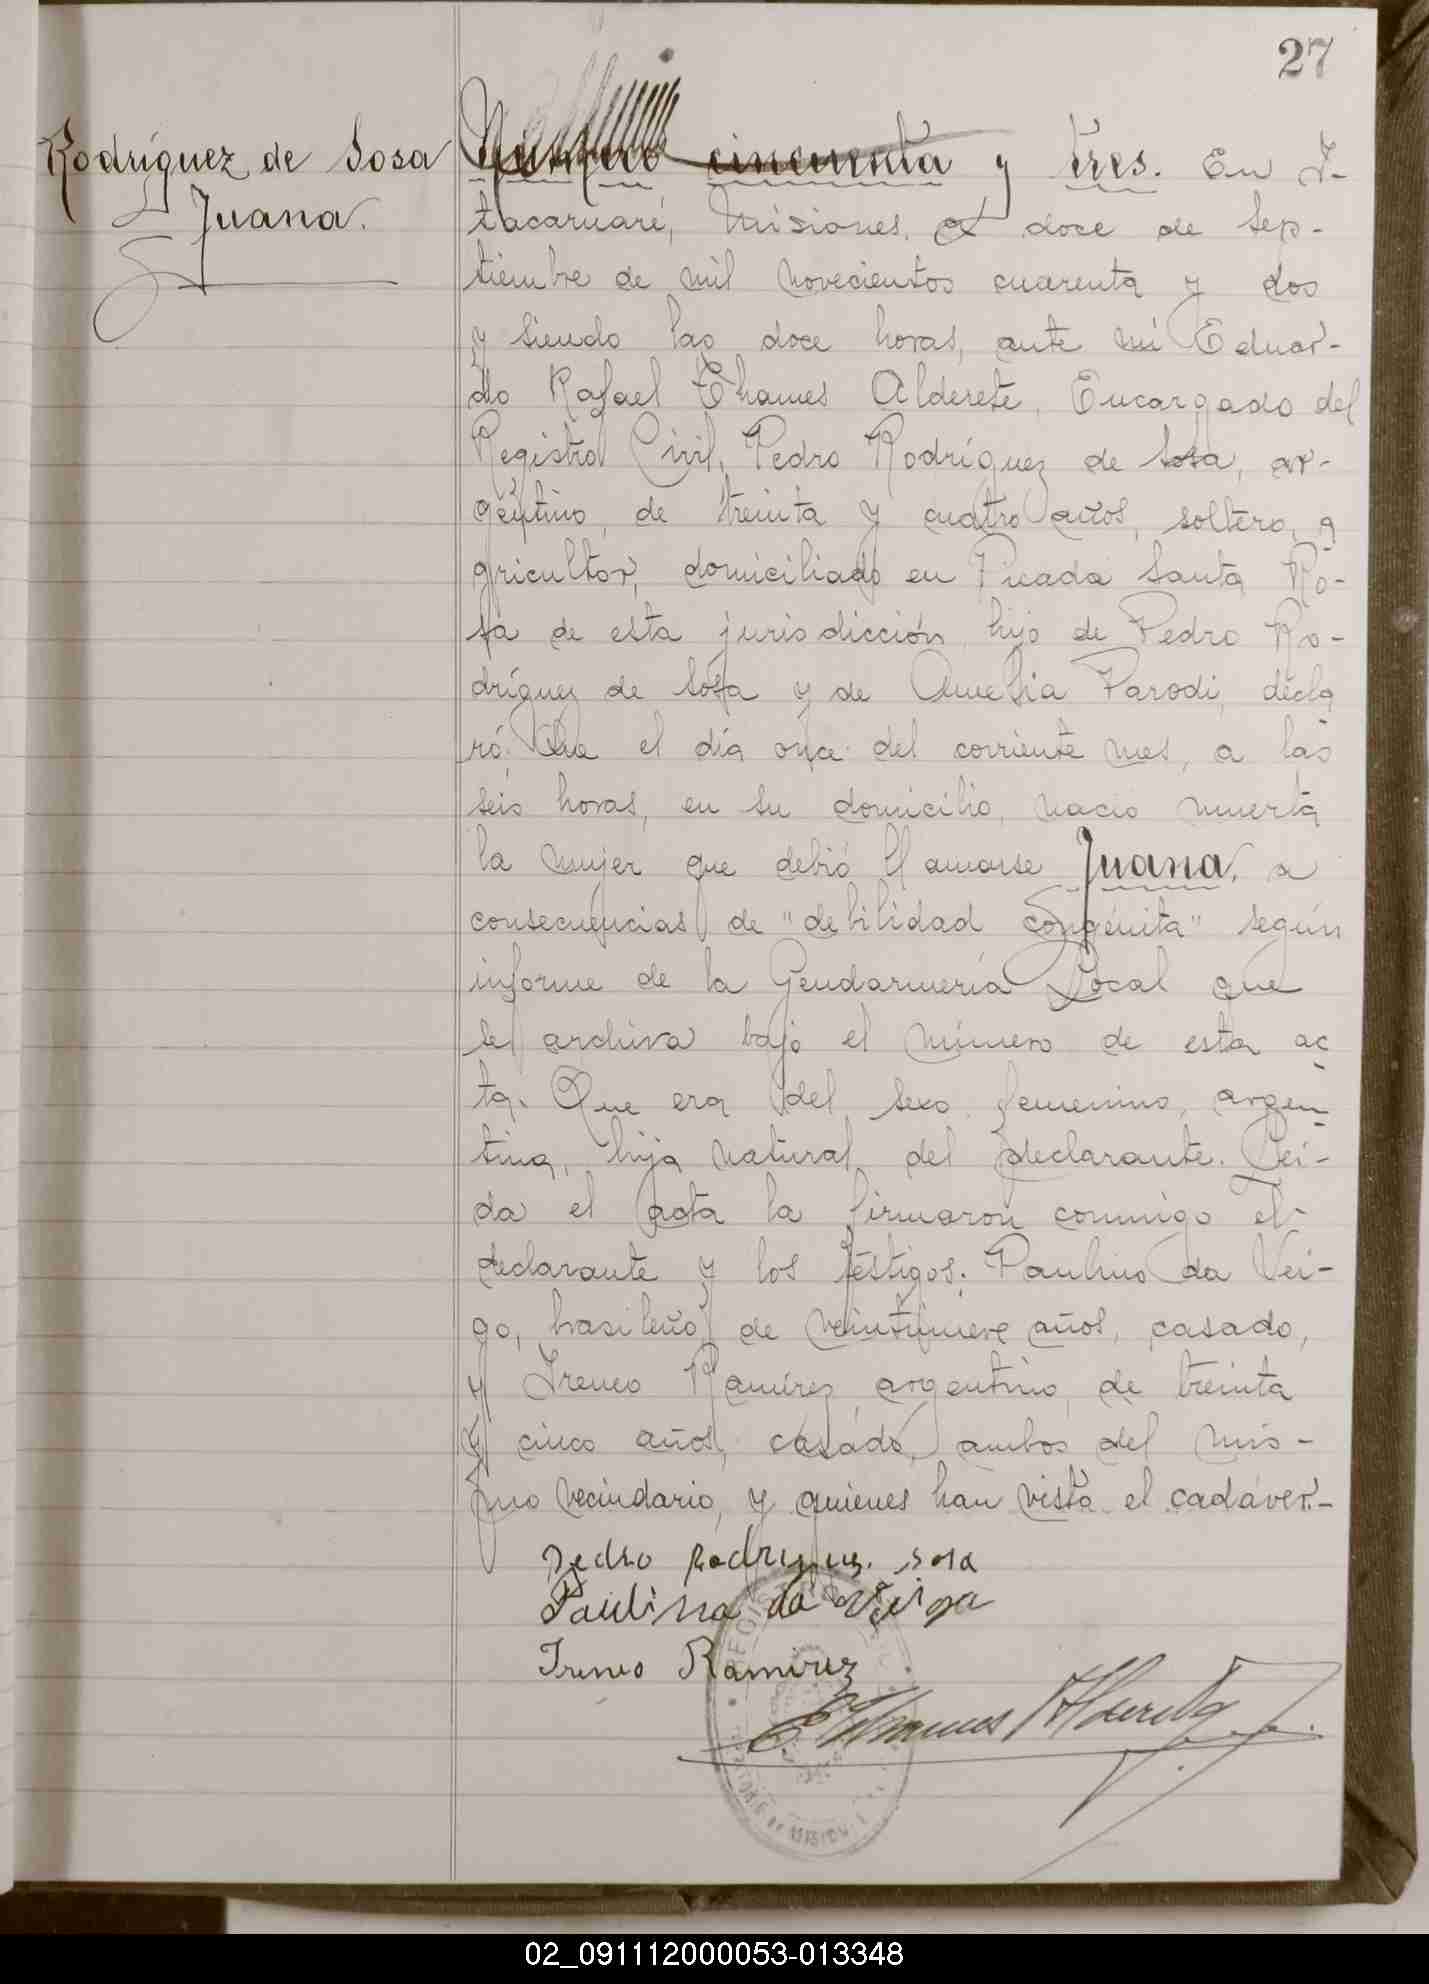 27
Rodríguez de Sosa
Juana.
Número cincuenta y tres. En I-
tacaruaré, Misiones, a doce de Sep-
tiembre de mil novecientos cuarenta y dos
y siendo las doce horas, ante mí Eduar-
do Rafael Thames Alderete, Encargado del
Registro Civil, Pedro Rodríguez de Sosa, ar-
gentino, de treinta y cuatro años, soltero, a
gricultor, domiciliado en Picada Santa Ro-
sa de esta jurisdicción, hijo de Pedro Ro-
dríguez de Sosa y de Amelia Parodi, decla
ró: Que el día once del corriente mes, a las
seis horas, en su domicilio, nació muerta
la mujer que debió llamarse Juana, a
consecuencias de "debilidad congénita" según
informe de la Gendarmería Local que
se archiva bajo el número de esta ac
ta. Que era del sexo femenino, argen
tina, hija natural del declarante. Leí-
da el acta la firmaron conmigo el
declarante y los testigos: Paulino da Vei-
ga, brasileño, de veintinueve años, casado,
y Ireneo Ramírez, argentino, de treinta
y cinco años, casado, ambos del mis-
mo vecindario, y quienes han visto el cadáver.-
Pedro Rodriguez. Sosa
Paulino da Veiga
Ireneo Ramirez
E Thames Alderete
02_091112000053-013348